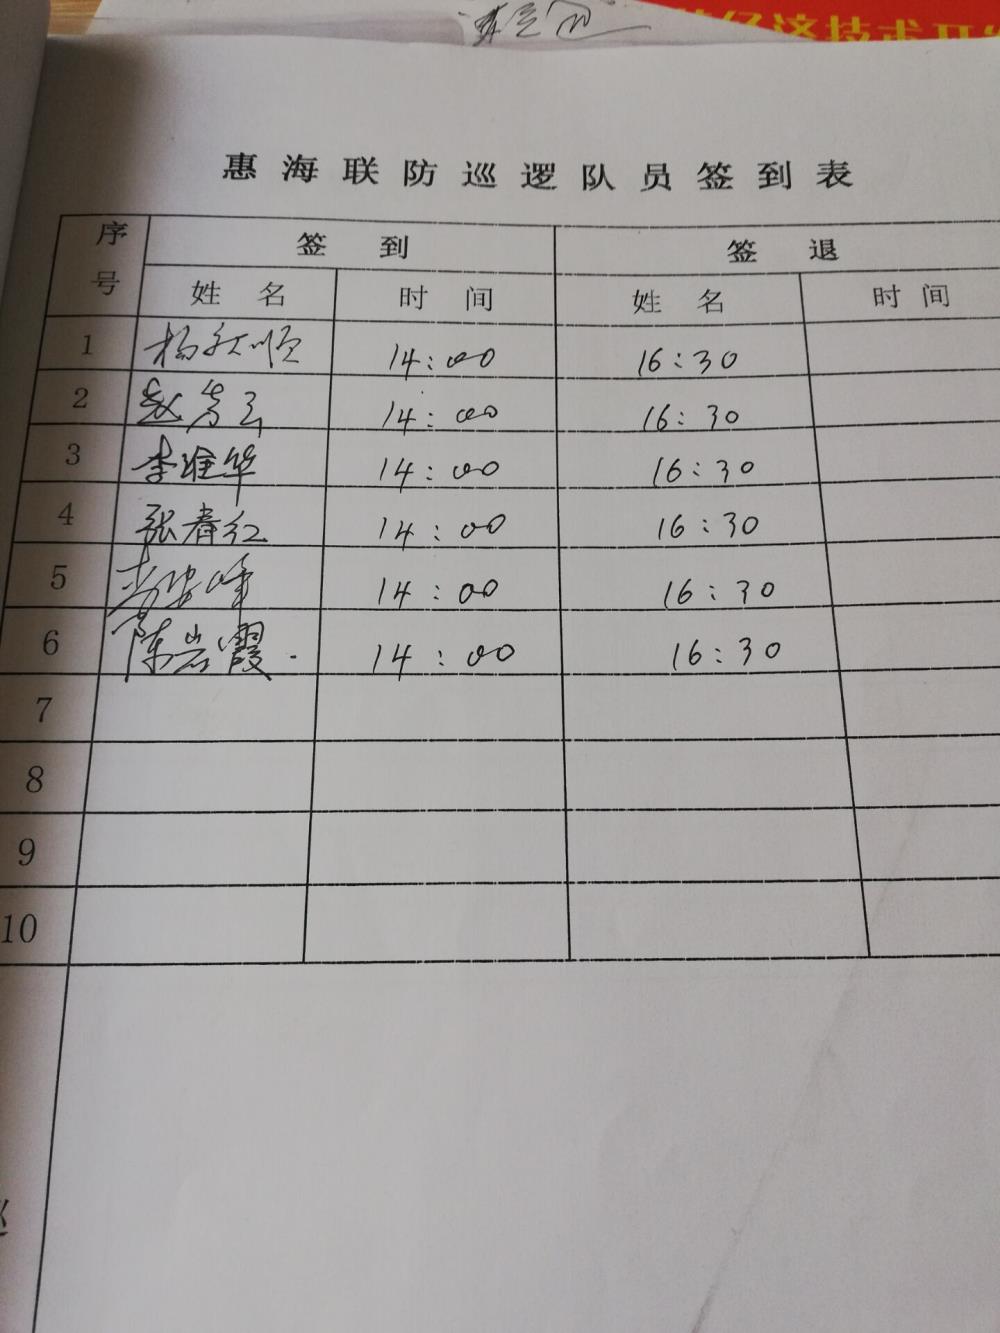 经济技术开发
惠海联防巡逻队员签到表
序号 签到 签退
姓名 时间 姓名 时间
1 杨 顺 14:00 16:30
2 赵芳云 14:00 16:30
3 李维华 14:00 16:30
4 张春红 14:00 16:30
5 峰 14:00 16:30
6 陈岩霞. 14:00 16:30
7
8
9
10